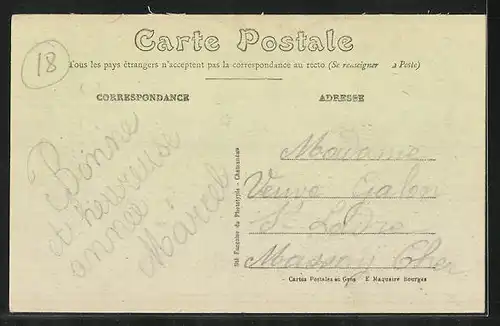 18
Carte Postale
Tous les pays étrangers n'acceptent pas la correspondance au recto (Se renseigner à Poste)
CORRESPONDANCE
ADRESSE
Bonne
et heureuse
année !
Marcel
Madame
Veuve Galon
St Ladre
Massay Cher
Sté Française de Phototypie - Chamonan
Cartes Postales en Gros E Maquaire Bourges